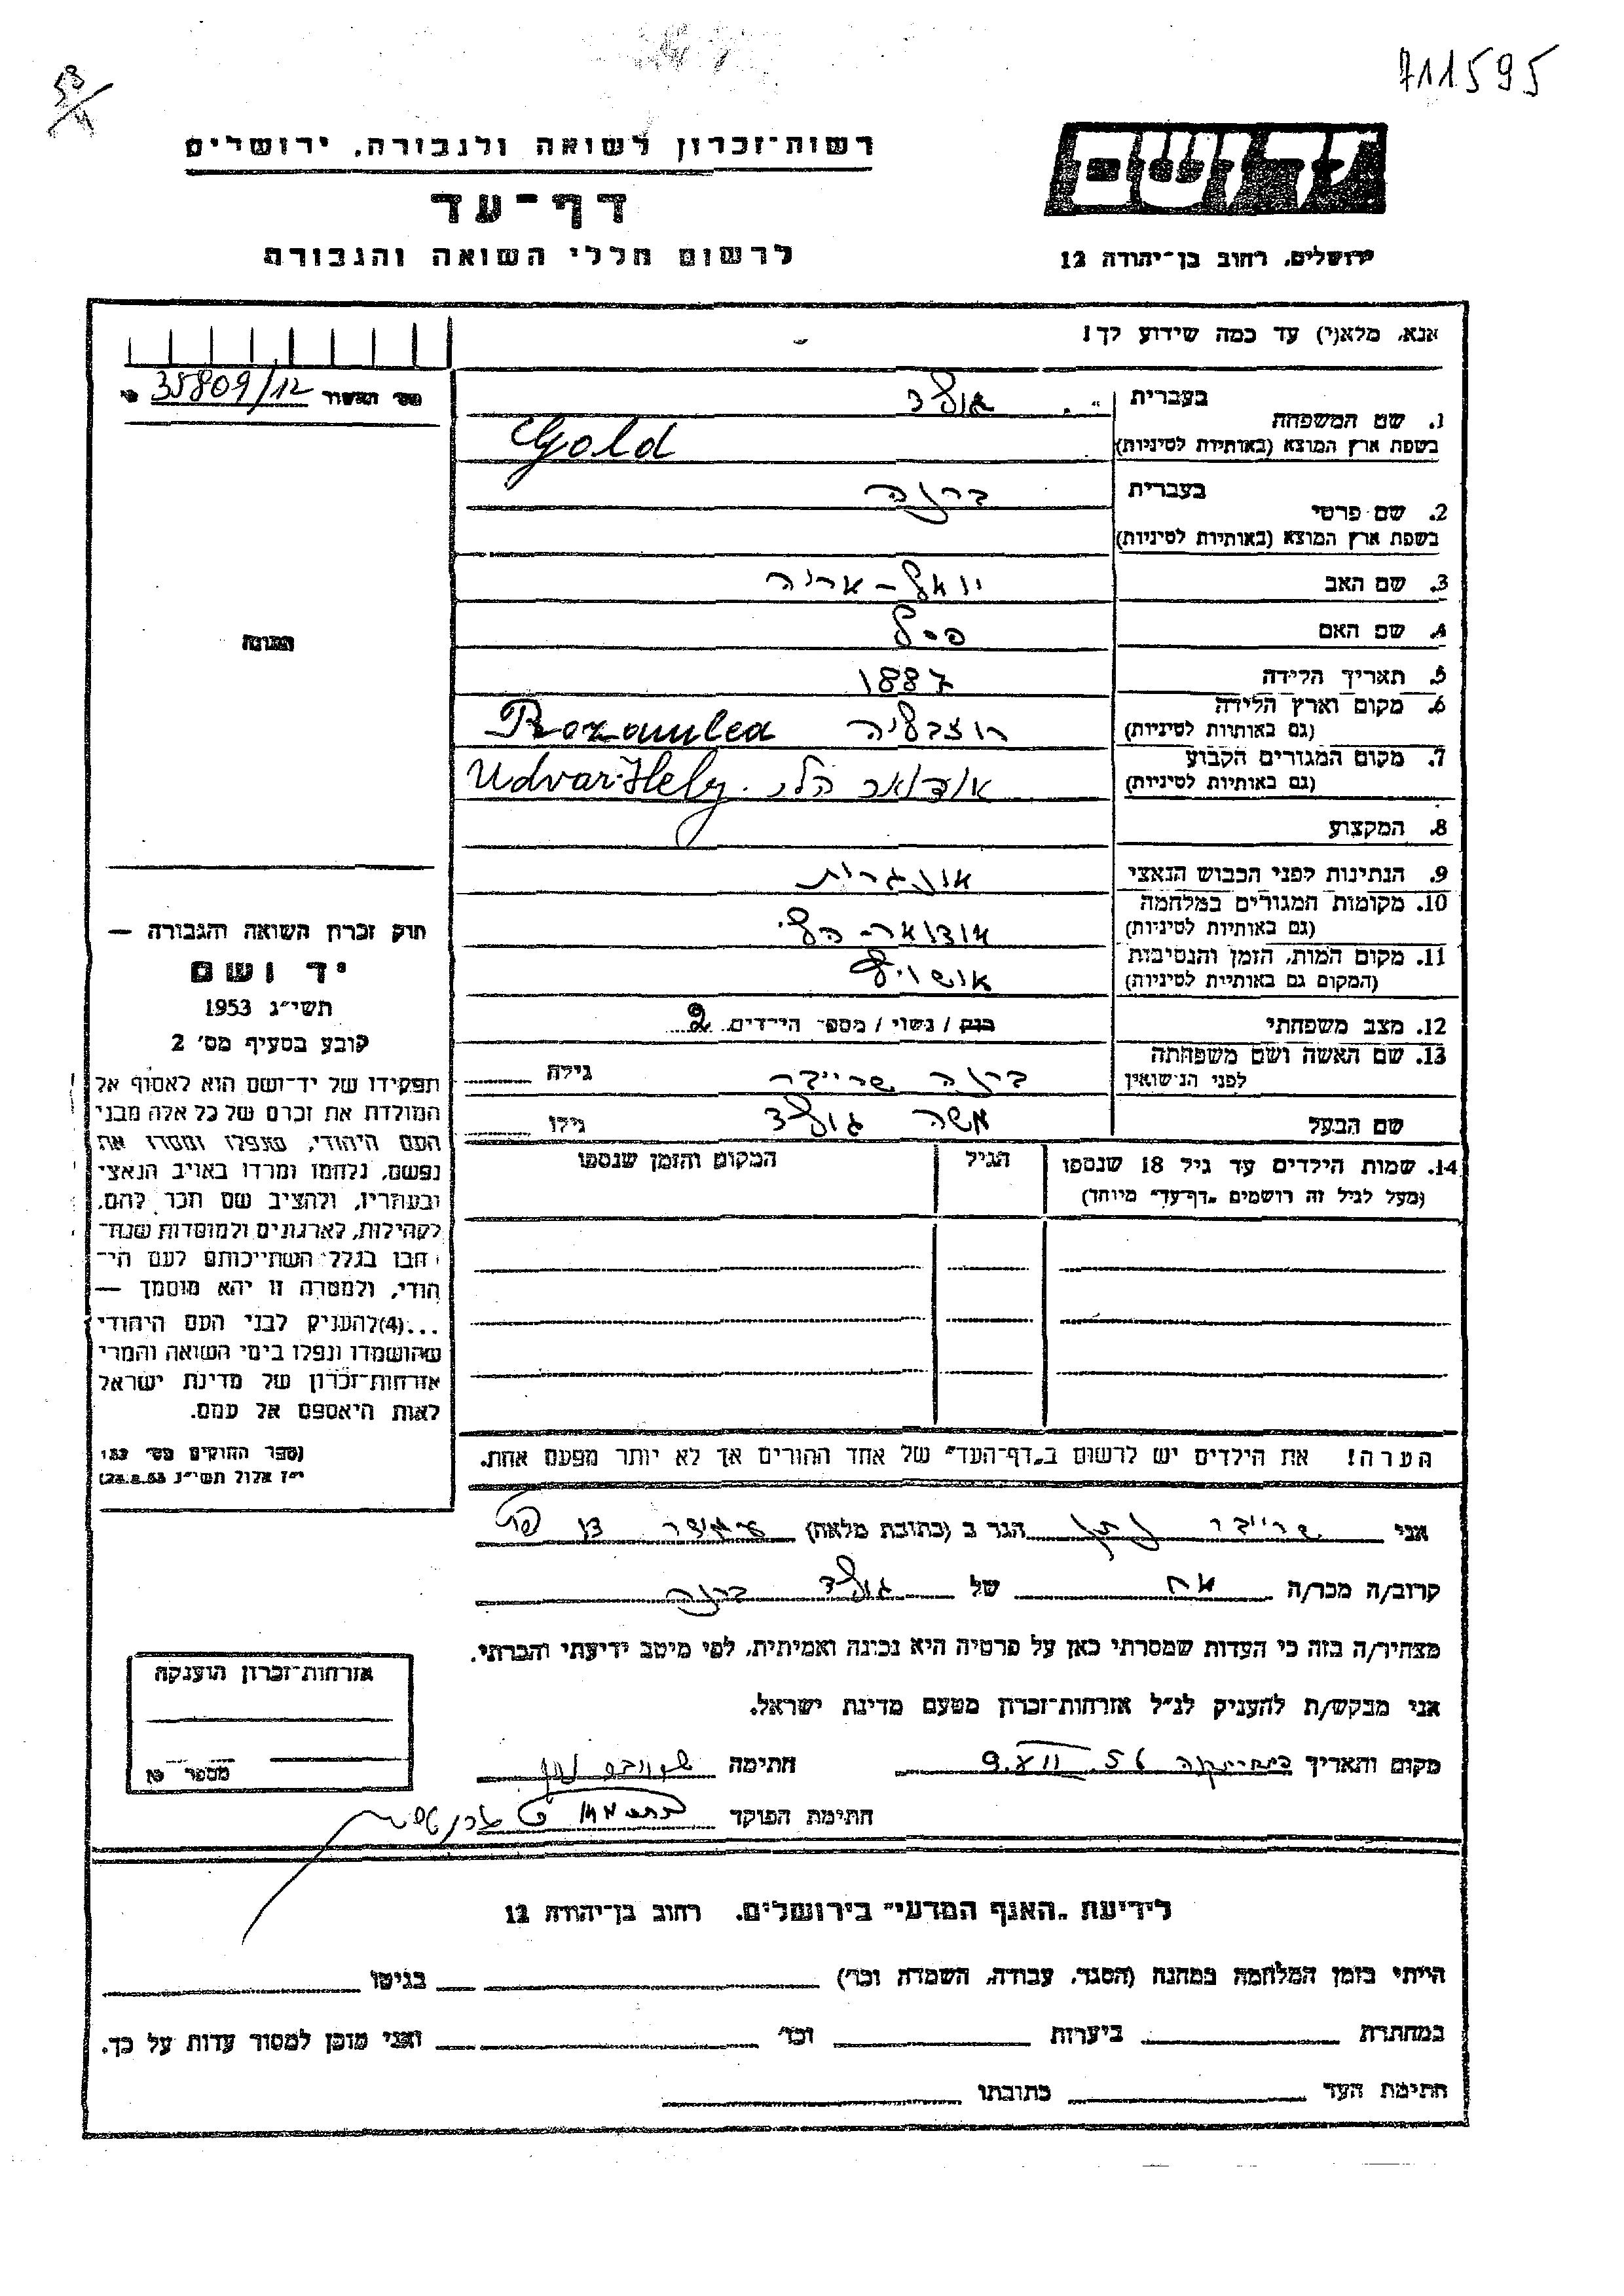 711595
רשות-זכרון לשואה ולגבורה, ירושלים
דף-עד
לרשום חללי השואה והגבורה
יד ושם
ירושלים, רחוב בן-יהודה 12
אנא, מלא(י) עד כמה שידוע לך!
35809/12
1. שם המשפחה בעברית גולד
בשפת ארץ המוצא (באותיות לטיניות) Gold
2. שם פרטי בעברית ברנה
בשפת ארץ המוצא (באותיות לטיניות)
3. שם האב יואל - אריה
4. שם האם
5. תאריך הלידה 1887
6. מקום וארץ הלידה (גם באותיות לטיניות) רוזבליה Rozavlea
7. מקום המגורים הקבוע (גם באותיות לטיניות) אודואר הלי. Udvar-Hely
8. המקצוע
9. הנתינות לפני הכבוש הנאצי אונגרית
10. מקומות המגורים במלחמה (גם באותיות לטיניות) אודואר-הלי
11. מקום המות, הזמן והנסיבות (המקום גם באותיות לטיניות) אושויץ
12. מצב משפחתי רווק / נשוי / מספר הילדים 2
13. שם האשה ושם משפחתה לפני הנישואין ברנה שרייבר גילה
שם הבעל משה גולד גילו
14. שמות הילדים עד גיל 18 שנספו (מעל לגיל זה רושמים "דף-עד" מיוחד) הגיל המקום והזמן שנספו
הערה! את הילדים יש לרשום ב"דף-העד" של אחד ההורים אך לא יותר מפעם אחת.
תמונה
חוק זכרון השואה והגבורה —
יד ושם
תשי"ג 1953
קובע בסעיף מס' 2
תפקידו של יד-ושם הוא לאסוף אל
המולדת את זכרם של כל אלה מבני
העם היהודי, שנפלו ומסרו את
נפשם, נלחמו ומרדו באויב הנאצי
ובעוזריו, ולהציב שם וזכר להם,
לקהילות, לארגונים ולמוסדות שנח-
רבו בגלל השתייכותם לעם הי-
הודי, ולמטרה זו יהא מוסמך —
...(4)להעניק לבני העם היהודי
שהושמדו ונפלו בימי השואה והמרי
אזרחות-זכרון של מדינת ישראל
לאות היאספם אל עמם.
(ספר החוקים מס' 132
י"ז אלול תשי"ג 28.8.53)
אני שרייבר נתן הגר ב (כתובת מלאה)
קרוב/ה מכר/ה אח של גולד ברנה
מצהיר/ה בזה כי העדות שמסרתי כאן על פרטיה היא נכונה ואמיתית, לפי מיטב ידיעתי והכרתי.
אני מבקש/ת להעניק לנ"ל אזרחות-זכרון מטעם מדינת ישראל.
מקום ותאריך 9.XII.56 חתימה
חתימת הפוקד
אזרחות-זכרון הוענקה
מספר
לידיעת "האגף המדעי" בירושלים. רחוב בן-יהודה 12
הייתי בזמן המלחמה במחנה (הסגר, עבודה, השמדה וכו') בגיטו
במחתרת ביערות וכו' ואני מוכן למסור עדות על כך.
חתימת העד כתובתו